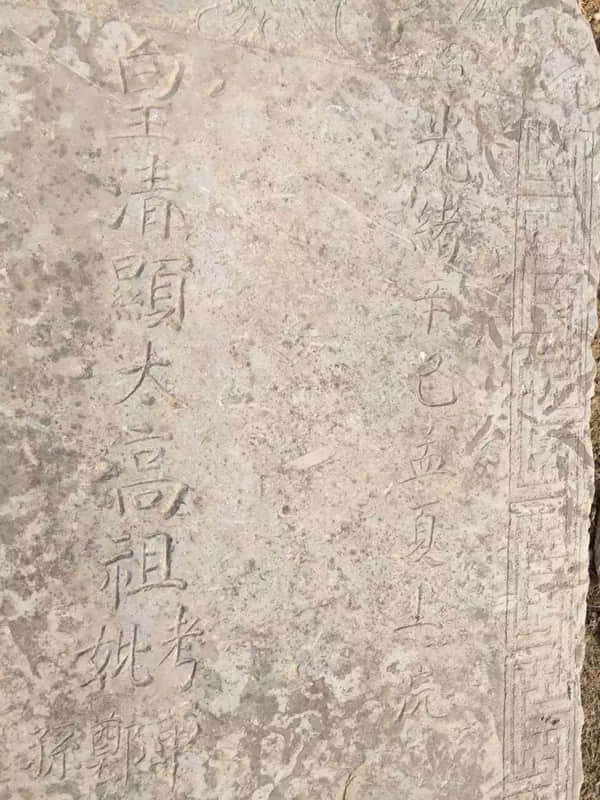 光緒辛巳孟夏上浣
皇清顯大高祖
考
妣
鄭
孫